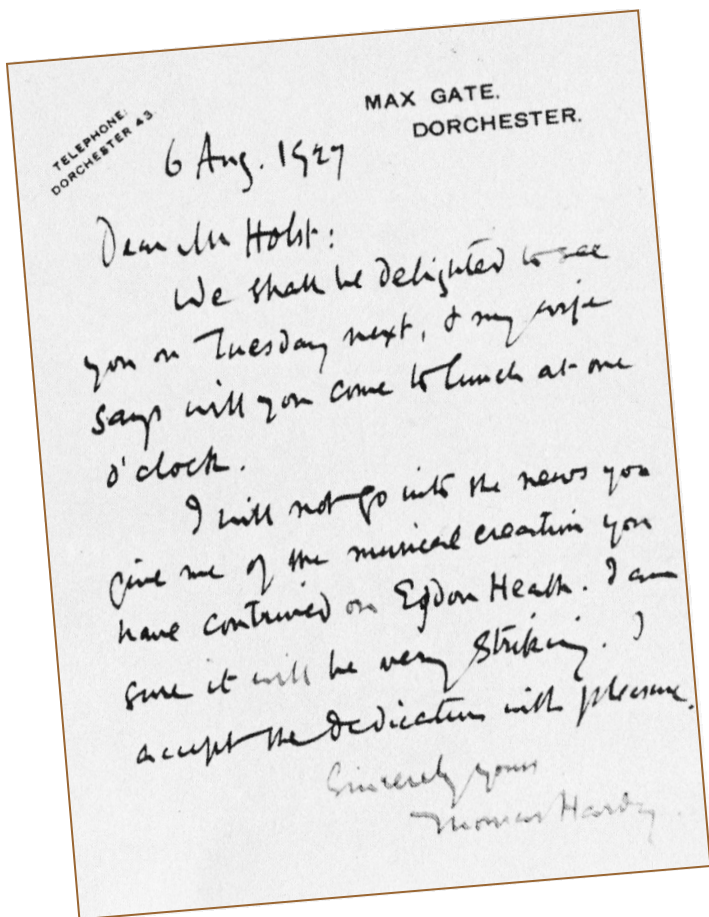 TELEPHONE:
DORCHESTER 43.
MAX GATE.
DORCHESTER.
6 Aug. 1927
Dear Mr Holst:
We shall be delighted to see
you on Tuesday next, & my wife
says will you come to lunch at one
o'clock.
I will not go into the news you
give me of the musical creation you
have contrived on Egdon Heath. I am
sure it will be very striking. I
accept the dedication with pleasure.
Sincerely yours
Thomas Hardy.